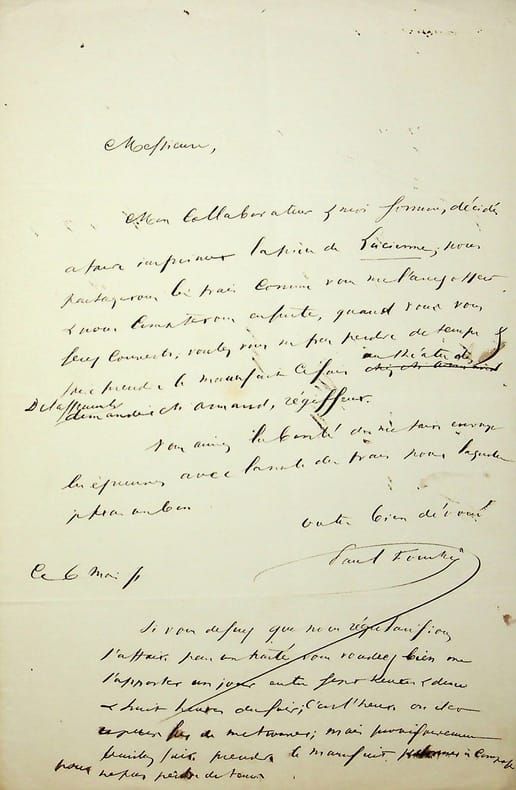 Messieur,
Mon Collaborateur & moi sommes décidés
a faire imprimer la pièce de Lucienne, nous
partagerons les frais comme vous me l'avez offert
& nous compterons ensuite, quand vous vous
serez convenus, voulez vous ne pas perdre de temps &
faire prendre le manuscrit ce soir au théâtre des
Delassements
demander Mr armand, régisseur.
Vous aurez la bonté de me faire envoyer
les épreuves avec la note des frais pour
votre bien dévoué
Paul Fouché
Ce 6 Mai
Si vous désirez que nous régularisions
l'affaire par un traité vous voudrez bien me
l'apporter un jour entre sept heures & demie
& huit heures du soir; c'est l'heure où
de me trouver; mais provisoirement
faites prendre le manuscrit
pour ne pas perdre de tems